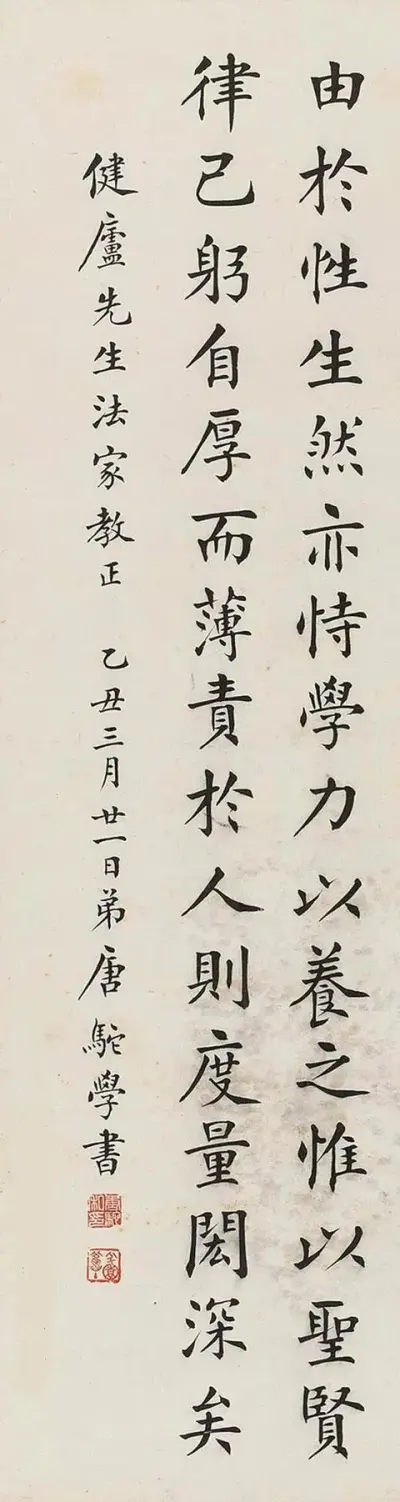 由於性生然亦恃學力以養之惟以聖賢
律己躬自厚而薄責於人則度量閎深矣
健廬先生法家教正 乙丑三月廿一日弟唐駝學書